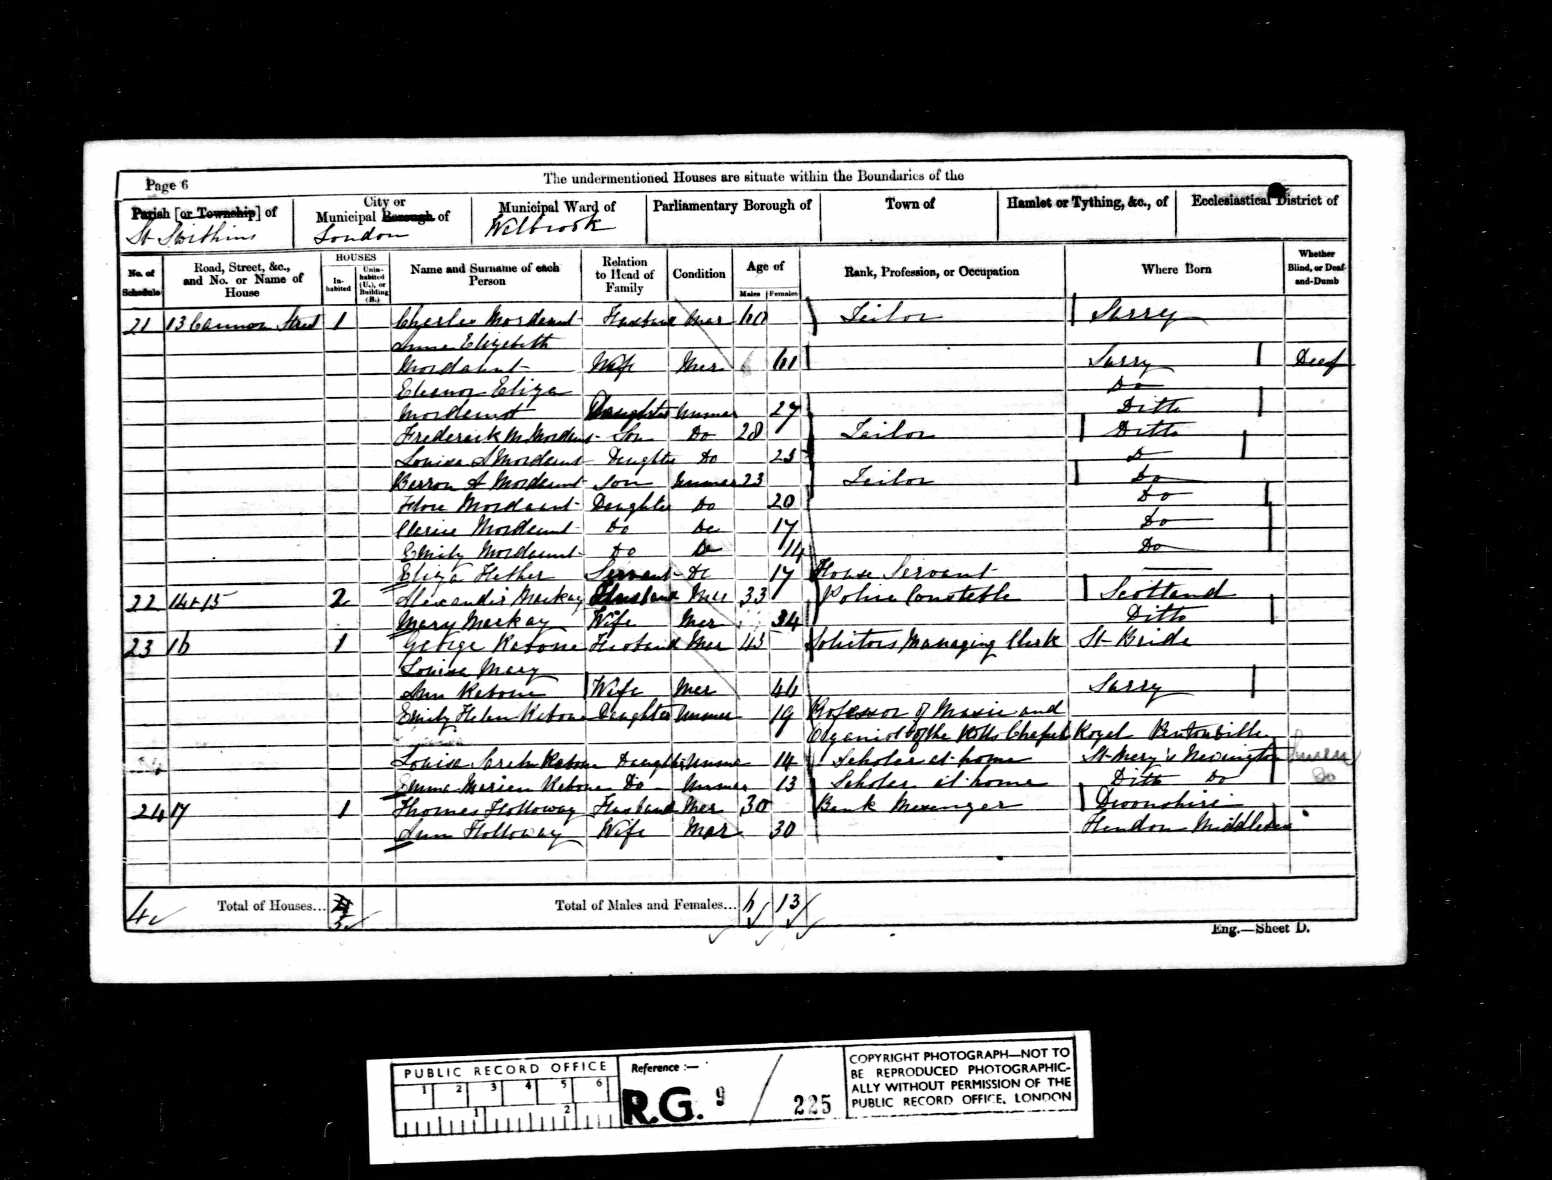 Page 6
The undermentioned Houses are situate within the Boundaries of the
Parish [or Township] of
City or Municipal Borough of
Municipal Ward of
Parliamentary Borough of
Town of
Hamlet or Tything, &c., of
Ecclesiastical District of
St Swithins
London
Walbrook
No. of Schedule
Road, Street, &c., and No. or Name of House
HOUSES
Inhabited
Uninhabited (U.), or Building (B.)
Name and Surname of each Person
Relation to Head of Family
Condition
Age of
Males
Females
Rank, Profession, or Occupation
Where Born
Whether Blind, or Deaf-and-Dumb
21 13 Cannon Street 1 Charles Mordaunt Husband Mar 60 Tailor Surry
Anne Elizabeth
Mordaunt Wife Mar 61 Surry Deaf
Eleanor Eliza Do
Mordaunt Daughter Unmar 27 Ditto
Frederick M Mordaunt Son Do 28 Tailor Ditto
Louisa S Mordaunt Daughter Do 25 D
Barron A Mordaunt Son Unmar 23 Tailor Do
Flora Mordaunt Daughter Do 20 Do
Clarise Mordaunt Do Do 17 Do
Emily Mordaunt Do Do 14 Do
Eliza Hether Servant Do 17 House Servant
22 14+15 2 Alexander Mackay Husband Mar 33 Police Constable Scotland
Mary Mackay Wife Mar 34 Ditto
23 16 1 George Rabone Husband Mar 43 Solicitors Managing Clerk St Bride
Louisa Mary
Ann Rabone Wife Mar 46 Surry
Emily Helen Rabone Daughter Unmar 19 Professor of Music and
Organist of the Rolls Chapel Royal Pentonville
Louisa Rabone Daughter Unmar 14 Scholar at home St Mary's Newington
Emma Marian Rabone Do Unmar 13 Scholar at home Ditto Do Do
24 17 1 Thomas Holloway Husband Mar 30 Bank Messenger Devonshire
Ann Holloway Wife Mar 30 Hendon Middlesex
4 Total of Houses... Total of Males and Females... 6 13
Eng.—Sheet D.
PUBLIC RECORD OFFICE
1 2 3 4 5 6
1 2
Reference :—
R.G. 9 / 225
COPYRIGHT PHOTOGRAPH—NOT TO
BE REPRODUCED PHOTOGRAPHIC-
ALLY WITHOUT PERMISSION OF THE
PUBLIC RECORD OFFICE, LONDON